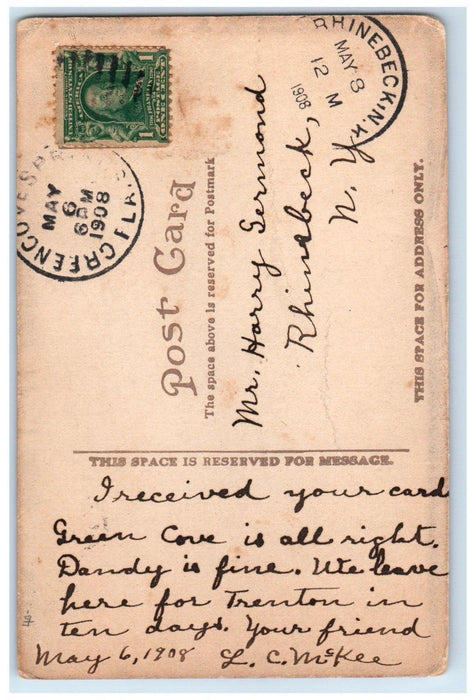 RHINEBECK, N.Y.
MAY 8
12 M
1908
GREEN COVE SPRINGS FLA.
MAY
6
6 AM
1908
Post Card
The space above is reserved for Postmark
Mr. Harry Germond
Rhinebeck,
N. Y.
THIS SPACE FOR ADDRESS ONLY.
THIS SPACE IS RESERVED FOR MESSAGE.
I received your card
Green Cove is all right.
Dandy is fine. We leave
here for Trenton in
ten days. Your friend
May 6, 1908 L. C. McKee